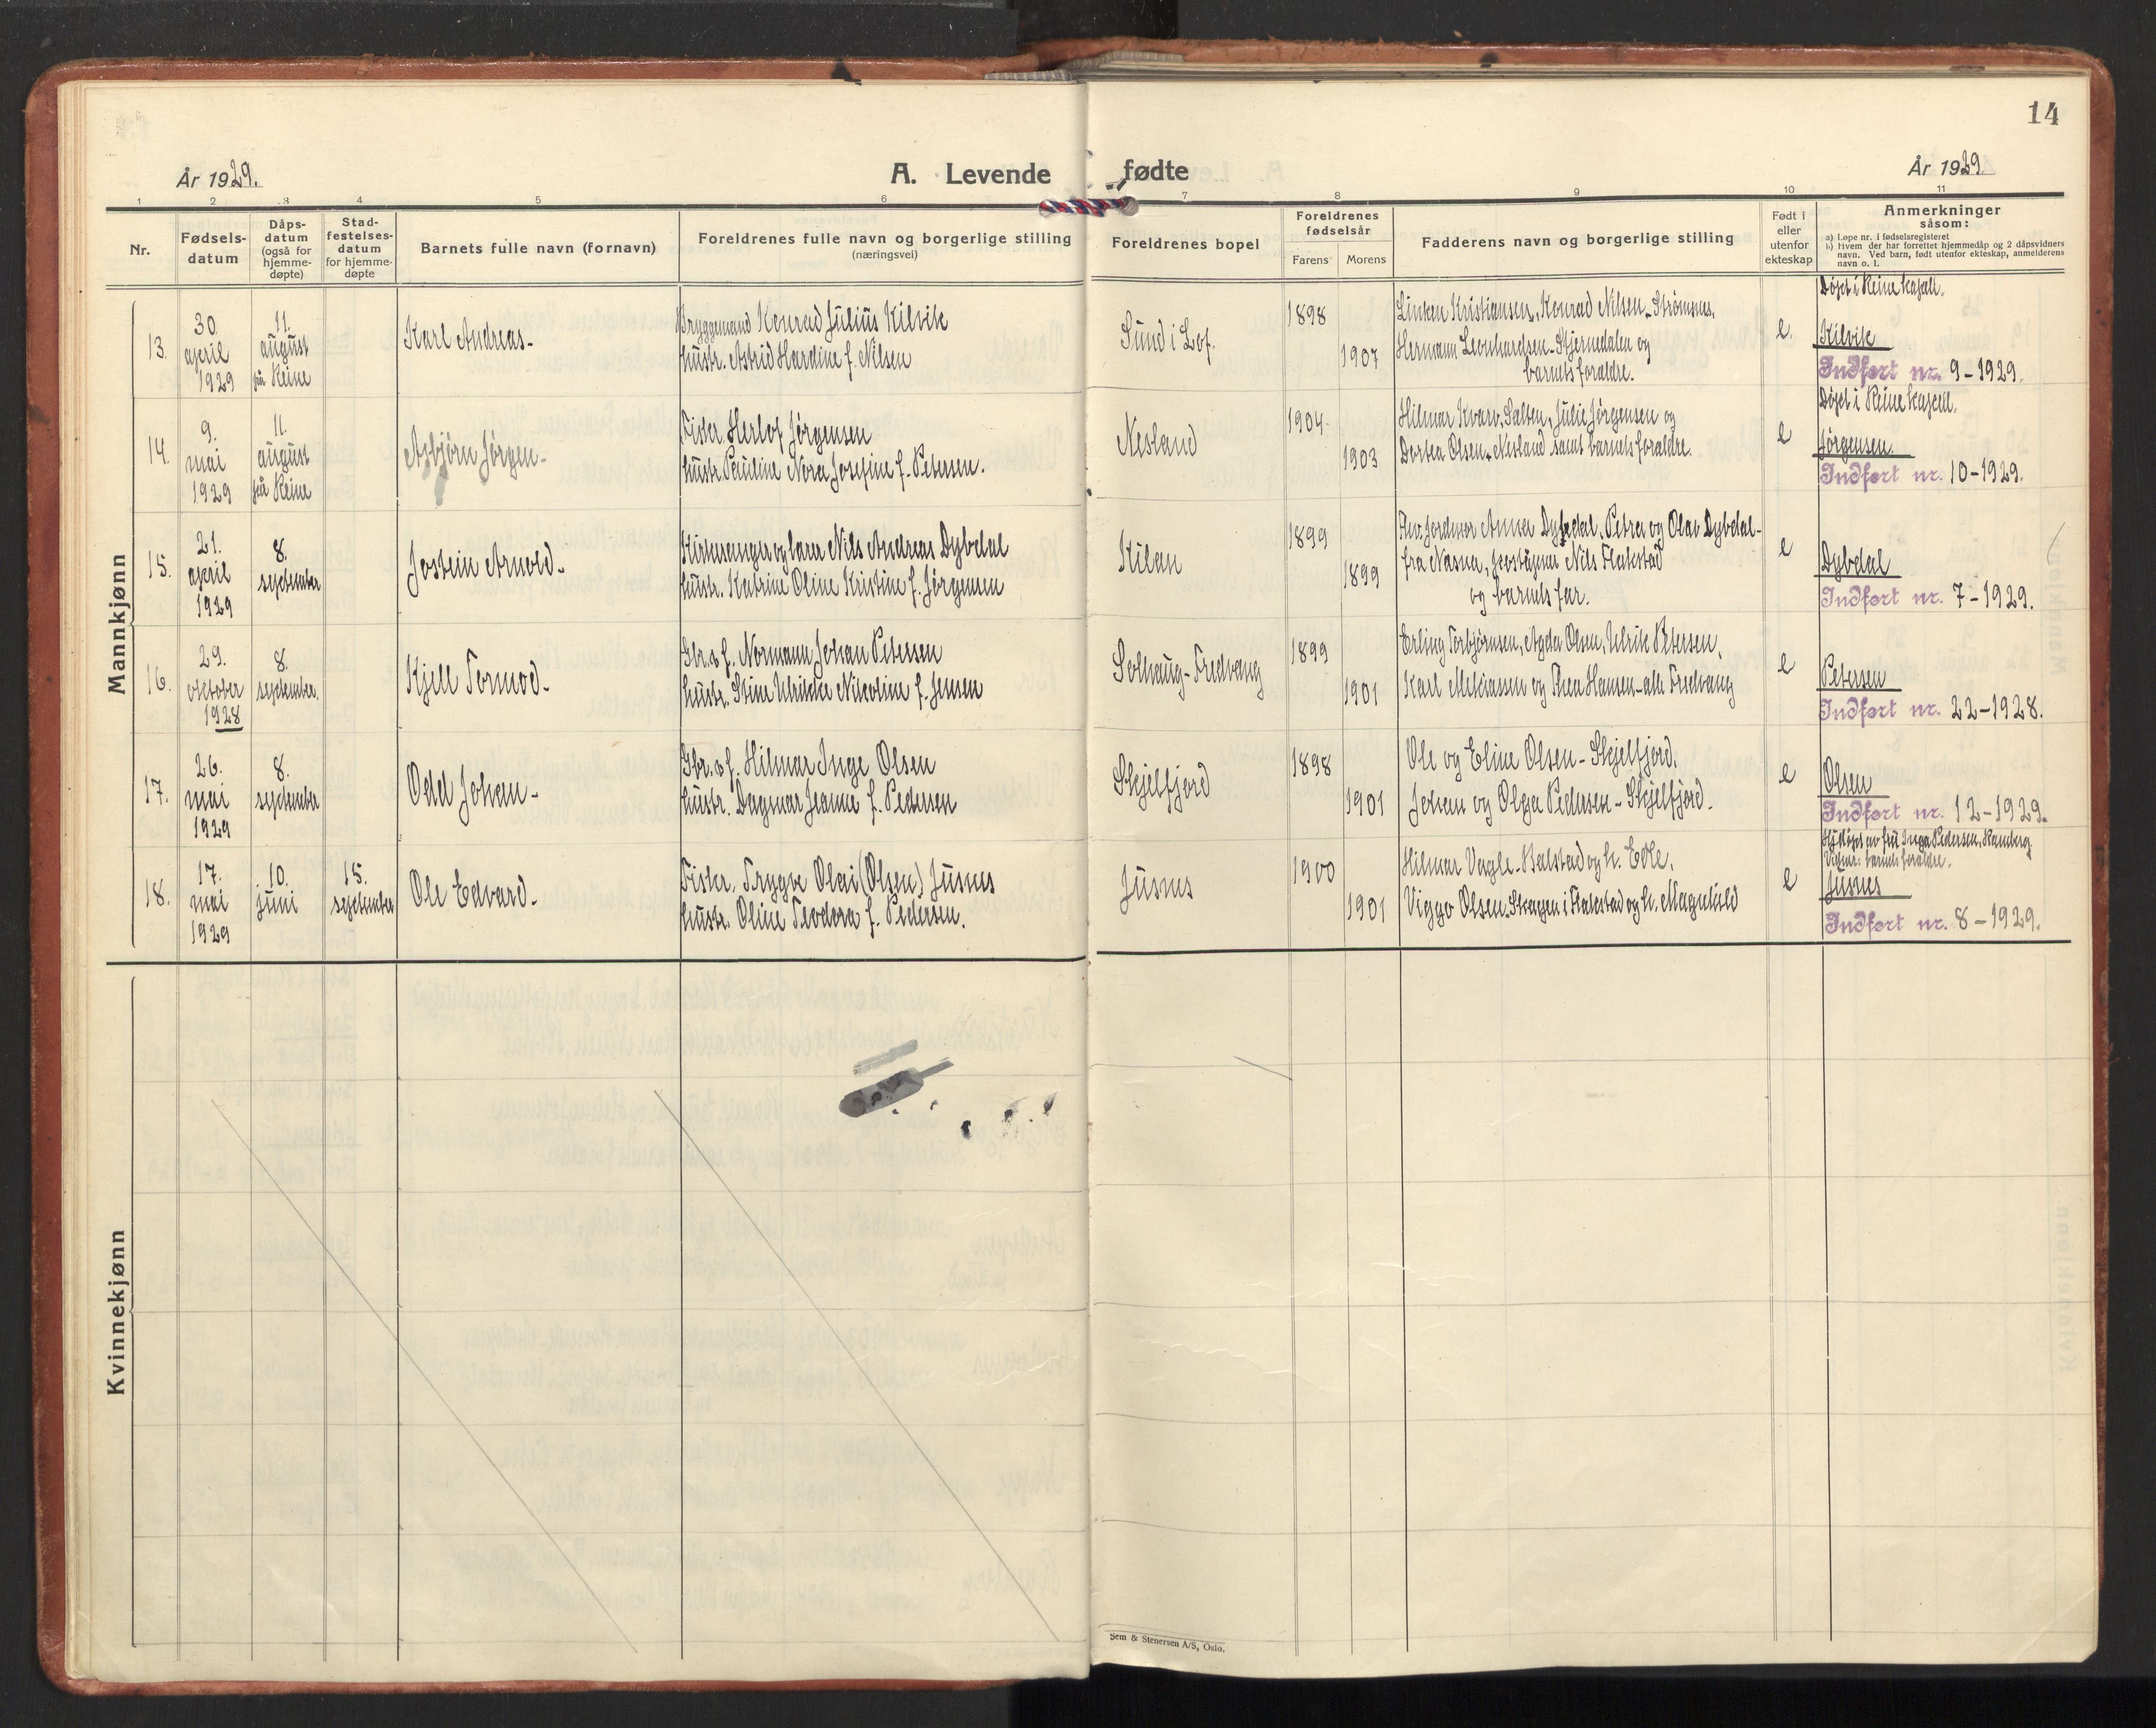 14
År 1929.
A. Levende fødte
År 1929.
1 2 3 4 5 6 7 8 9 10 11
Nr.
Fødsels-
datum
Dåps-
datum
(også for
hjemme-
døpte)
Stad-
festelses-
datum
for hjemme-
døpte
Barnets fulle navn (fornavn)
Foreldrenes fulle navn og borgerlige stilling
(næringsvei)
Foreldrenes bopel
Foreldrenes
fødselsår
Farens
Morens
Fadderens navn og borgerlige stilling
Født i
eller
utenfor
ekteskap
Anmerkninger
såsom:
a) Løpe nr. i fødselsregisteret
b) Hvem der har forrettet hjemmedåp og 2 dåpsvidners
navn. Ved barn, født utenfor ekteskap, anmelderens
navn o. l.
Mannkjønn
13.
30.
april
1929
11.
august
på Reine
Karl Andreas-
Bryggemand Konrad Julius Kilvik
hustr. Astrid Hardine f. Nilsen
Sund i Lof.
1898
1907
Linken Kristiansen, Konrad Nilsen-Strømsnes,
Hermann Leonhardsen-Stjernedalen og
barnets foreldre.
e.
Døpt i Reine kapell.
Kilvik
Indført nr. 9-1929.
14.
9.
mai
1929
11.
august
på Reine
Asbjørn Jørgen-
Fisker Herlof Jørgensen
hustr. Pauline Nora Josefine f. Petersen.
Nesland
1904
1903
Hilmar Kvarv-Salten, Julie Jørgensen og
Dortea Olsen, Nesland samt barnets foreldre.
e
Døpt i Reine kapell.
Jørgensen.
Indført nr. 10-1929.
15.
21.
april
1929
8.
september
Jostein Arnold-
Kirkesanger og lærer Nils Andreas Dybdal
hustr. Katrine Oline Kristine f. Jørgensen
Kilan
1899
1899
Frv. jordmor Anna Dybdal, Petra og Olav Dybdal-
fra Nasna, Nils Flakstad
og barnets far.
e
Dybdal
Indført nr. 7-1929.
16.
29.
oktober
1928
8.
september.
Kjell Tormod-
Gbr. & f. Normann Johan Petersen
hustr. Stine Ulrikke Nikoline f. Jensen
Solhaug-Fredvang
1899
1901
Erling Torbjørnsen, Agda Olsen, Ulrik Petersen,
Karl Meløiansen og Thea Hansen-alle Fredvang
e
Petersen
Indført nr. 22-1928.
17.
26.
mai
1929
8.
september
Odd Johan-
Gbr. & f. Hilmar Inge Olsen
hustr. Dagmar Jeanna f. Pedersen
Skjelfjord
1898
1901
Ole og Eline Olsen-Skjelfjord.
Johan og Olga Pedersen-Skjelfjord.
e
Olsen
Indført nr. 12-1929.
18.
17.
mai
1929
10.
juni
15.
september
Ole Edvard-
Fisker, Trygve Olai (Olsen) Jusnes
hustr. Oline Teodora f. Pedersen.
Jusnes
1900
1901
Hilmar Vagle-Balstad og h. Evle.
Viggo Olsen Skagen i Flakstad og h. Magnhild
e
Hj.døpt av fru Inga Pedersen, Ramberg
Vidner: barnets foreldre.
Jusnes
Indført nr. 8-1929.
Kvinnekjønn
Sem & Stenersen A/S, Oslo.